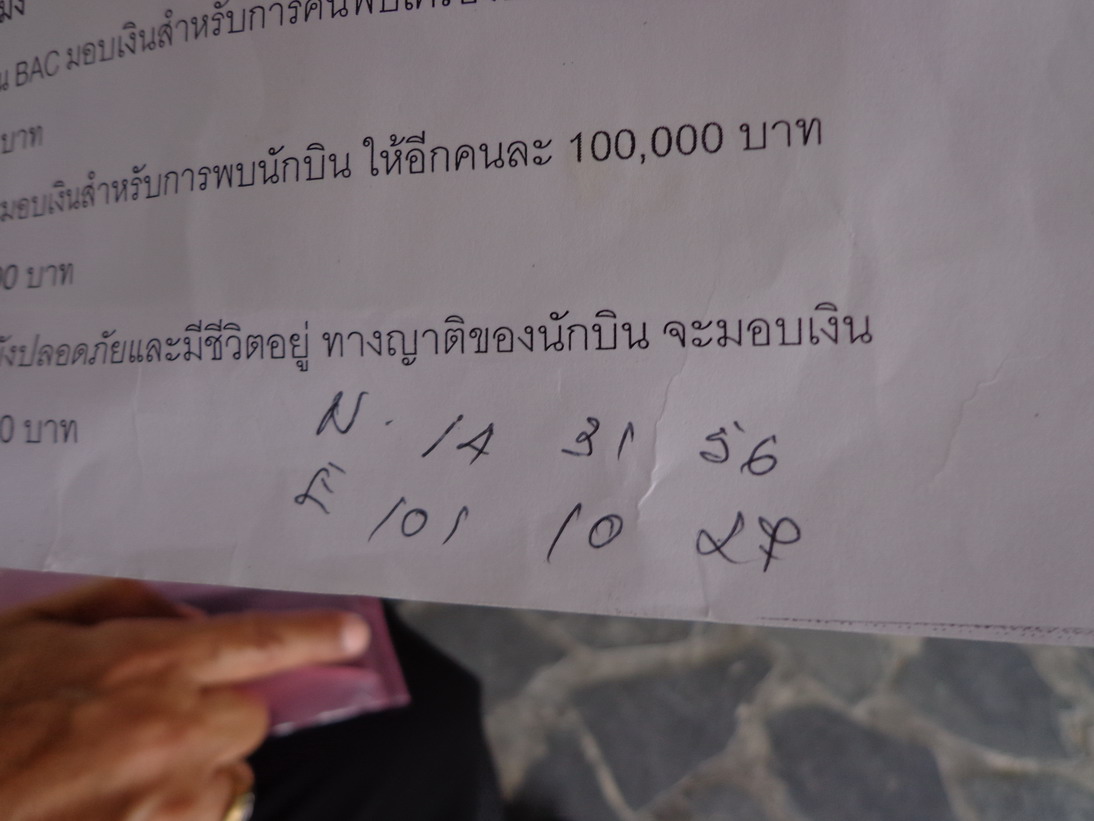 BAC มอบเงินสำหรับการค้นพบ
บาท
มอบเงินสำหรับการพบนักบิน ให้อีกคนละ 100,000 บาท
00 บาท
ปลอดภัยและมีชีวิตอยู่ ทางญาติของนักบิน จะมอบเงิน
0 บาท
N. 14 31 56
101 10